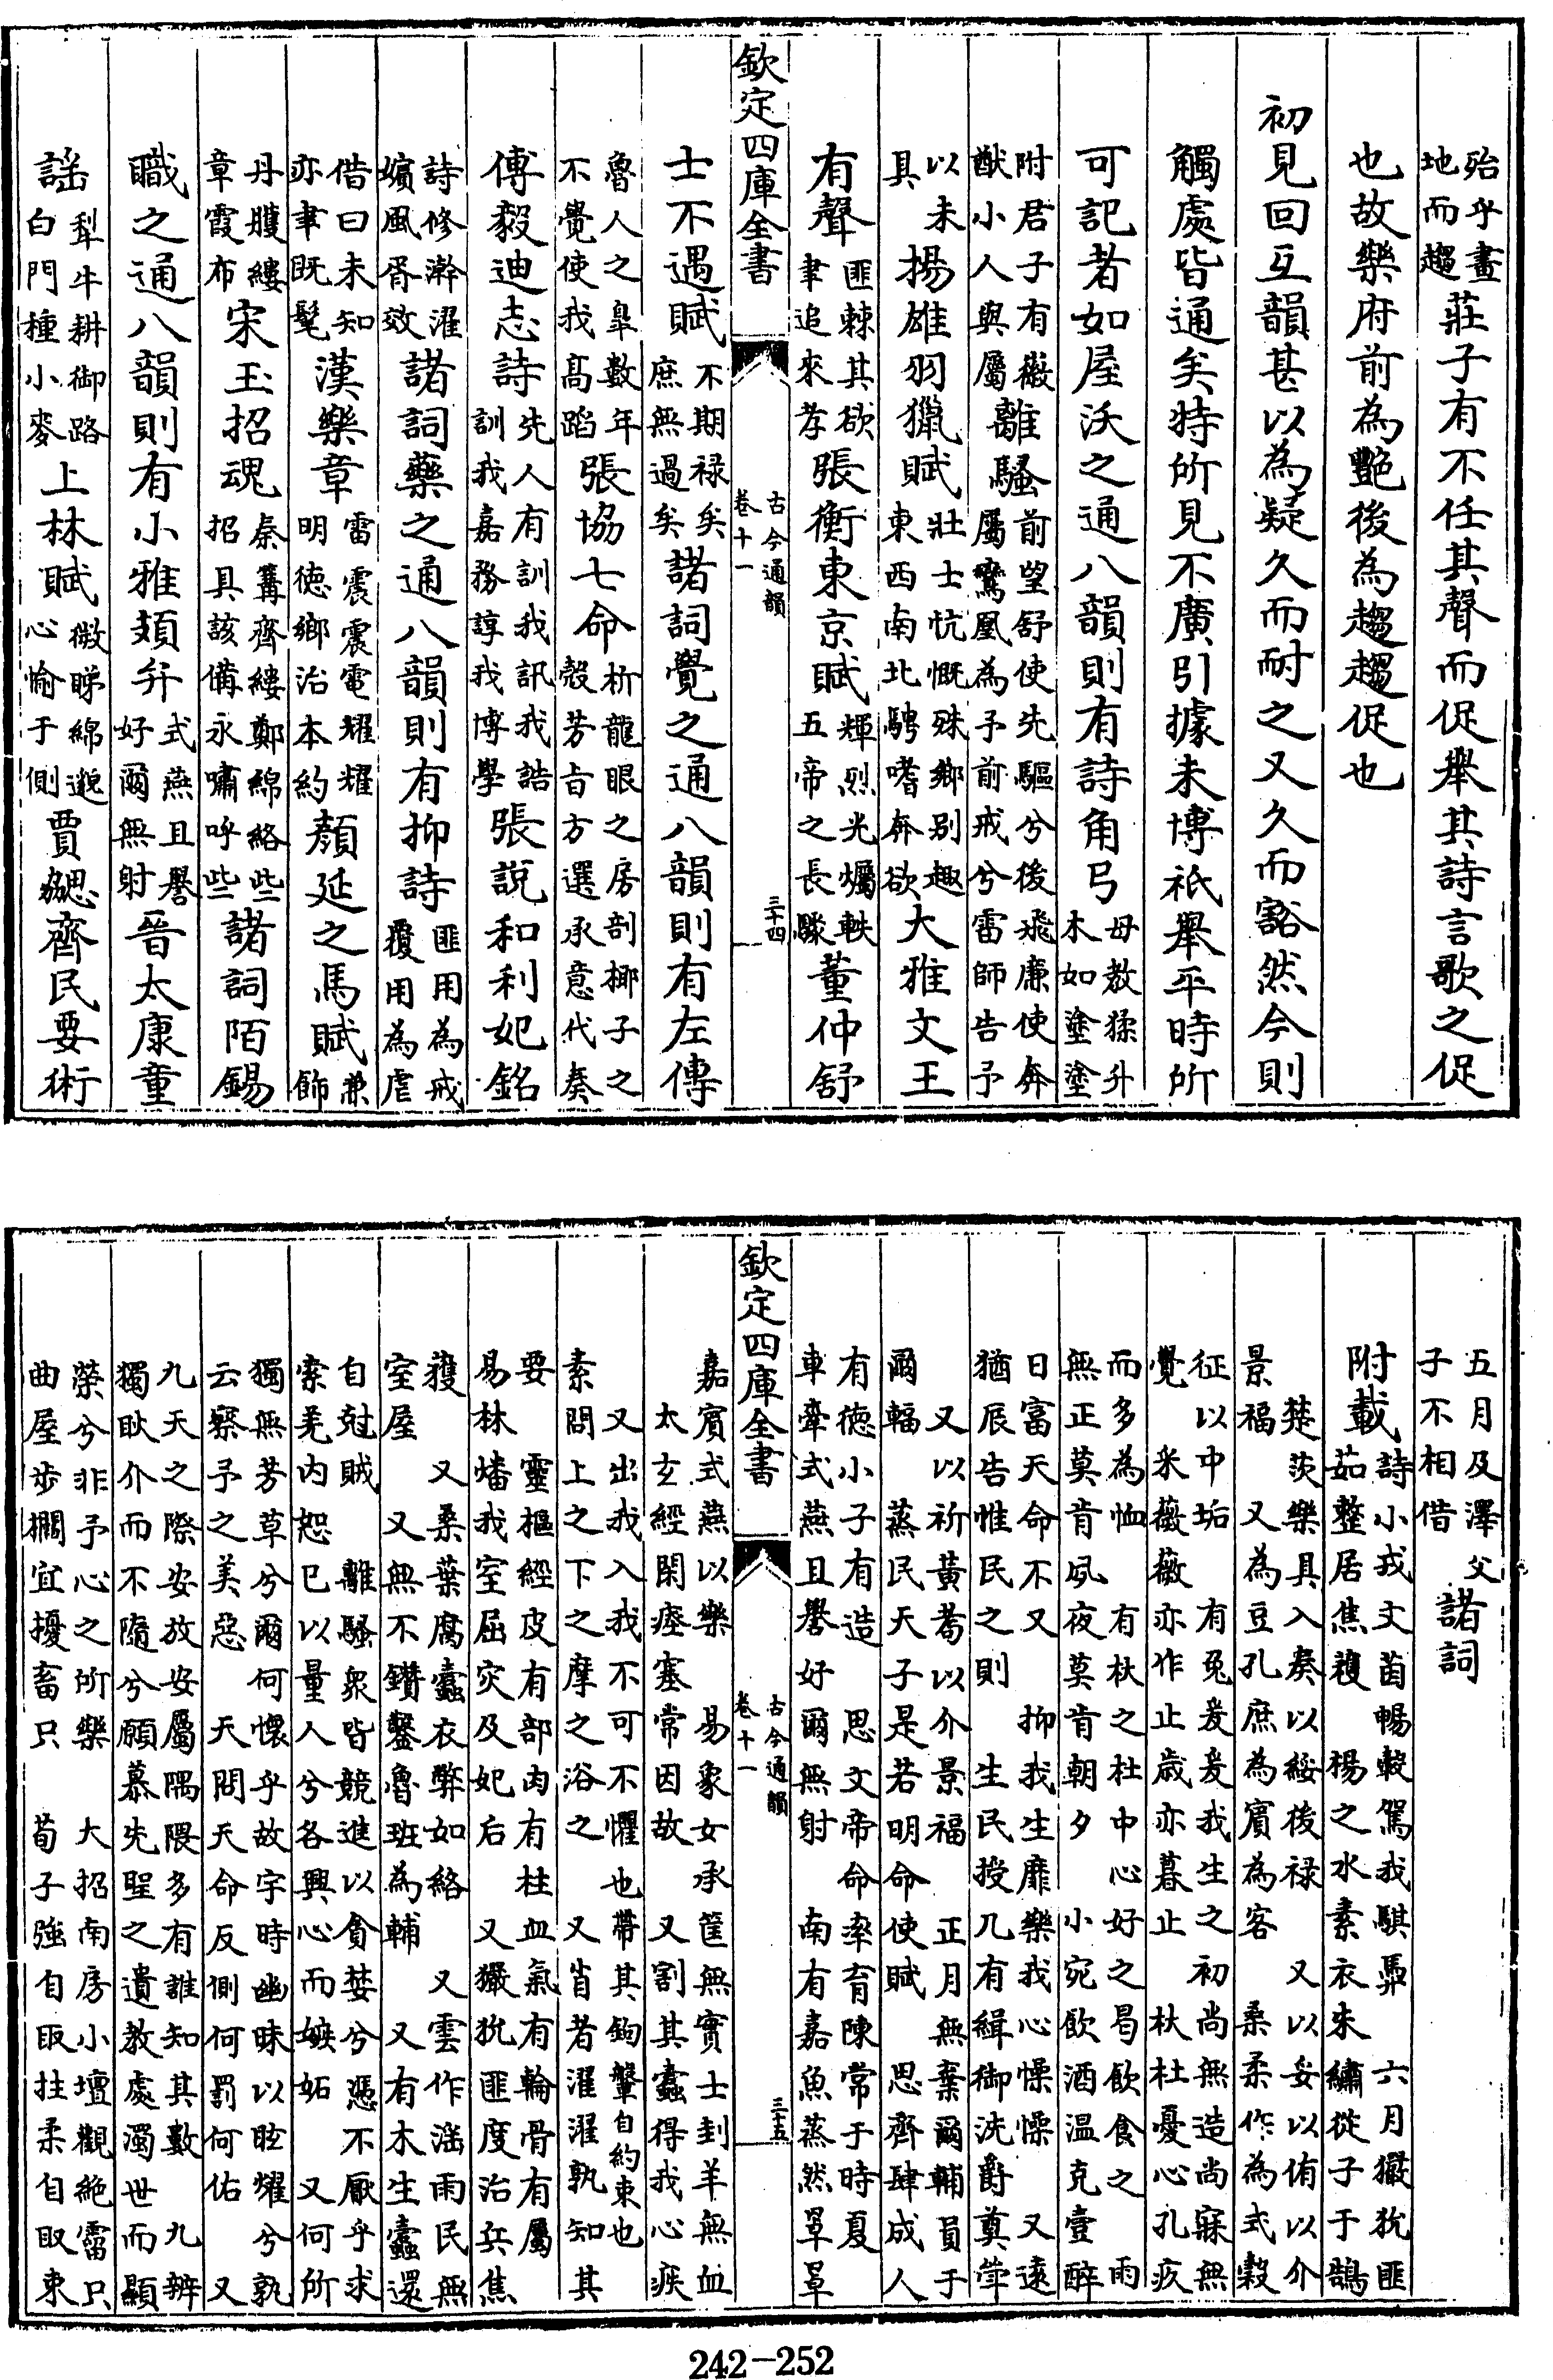 殆乎畫地而趨莊子有不任其聲而促舉其詩言歌之促
也故樂府前為艷後為趨趨促也
初見回互韻甚以為疑久而耐之又久而豁然今則
觸處皆通矣特所見不廣引據未博祇舉平時所
可記者如屋沃之通八韻則有詩角弓毋教猱升木如塗塗
附君子有徽猷小人與屬離騷前望舒使先驅兮後飛廉使奔屬鸞凰為予前戒兮雷師告予
以未具揚雄羽獵賦壯士忼慨殊鄉别趣東西南北騁嗜奔欲大雅文王
有聲匪棘其欲聿追來孝張衡東京賦輝烈光燭五帝之長軼董仲舒
欽定四庫全書
古今通韻
卷十一
三十四
士不遇賦不期禄矣庶無過矣諸詞覺之通八韻則有左傳
魯人之臯數年不覺使我高蹈張協七命析龍眼之房剖椰子之殼芳旨方選承意代奏
傅毅迪志詩先人有訓我訊我誥訓我嘉務誨我博學張說和利妃銘
詩修澣濯嬪風胥效諸詞藥之通八韻則有抑詩匪用為戒覆用為虐
借曰未知亦聿既髦漢樂章雷震震電耀耀明德鄉治本約顏延之馬賦兼飾
丹雘縷章霞布宋玉招魂秦篝齊縷鄭綿絡些招具該備永嘯呼些諸詞陌錫
職之通八韻則有小雅頍弁式燕且譽好爾無射晉太康童
謡犁牛耕御路白門種小麥上林賦微睇綿邈心愉于側賈勰齊民要術
五月及澤父子不相借諸詞
附載詩小戎文茵暢轂駕我騏馵 六月玁狁匪茹整居焦穫 楊之水素衣朱繡從子于鵠
楚茨樂具入奏以綏後禄 又以妥以侑以介景福 又為豆孔庶為賓為客 桑柔作為式榖
征以中垢 有兔爰爰我生之初尚無造尚寐無覺 采薇薇亦作止歲亦暮止 杕杜憂心孔疚
而多為恤 有杕之杜中心好之曷飲食之 雨無正莫肯夙夜莫肯朝夕 小宛飲酒温克壹醉
日富天命不又 抑我生靡樂我心懆懆 又遠猶辰告惟民之則 生民授几有緝御洗爵奠斝
又以祈黃耇以介景福 正月無棄爾輔員于爾輻 蒸民天子是若明命使賦 思齊肆成人
有德小子有造 思文帝命率育陳常于時夏 車舝式燕且譽好爾無射 南有嘉魚蒸然罩罩
欽定四庫全書
古今通韻
卷十一
三十五
嘉賓式燕以樂 易象女承筐無實士刲羊無血 太玄經閑㾏塞常因故 又割其蠹得我心疾
又出我入我不可不懼也帶其鉤鞶自約束也 素問上之下之摩之浴之 又肖者濯濯孰知其
要 靈樞經皮有部肉有柱血氣有輪骨有屬 易林燔我室屈灾及妃后 又玁狁匪度治兵焦
穫 又桑葉腐蠹衣弊如絡 又雲作淫雨民無室屋 又無不鑽鑿魯班為輔 又有木生蠹還
自尅賊 離騷衆皆競進以貪婪兮憑不厭乎求索羌内恕已以量人兮各興心而嫉妬 又何所
獨無芳草兮爾何懷乎故宇時幽昧以眩耀兮孰云察予之美惡 天問天命反側何罰何佑 又
九天之際安放安屬隅隈多有誰知其數 九辨獨耿介而不隨兮願慕先聖之遺教處濁世而顯
榮兮非予心之所樂 大招南房小壇觀絶霤只曲屋步櫩宜擾畜只 荀子強自取拄柔自取束
242-252